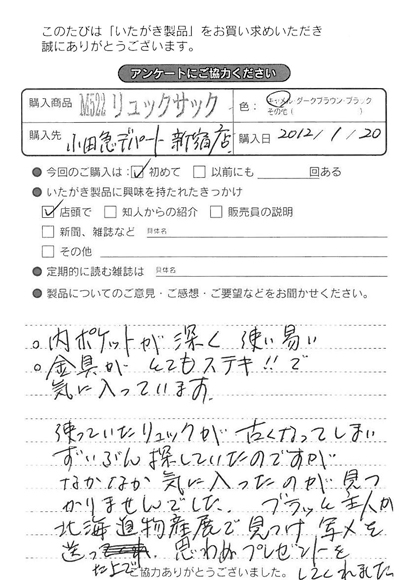 このたびは「いたがき製品」をお買い求めいただき
誠にありがとうございます。
アンケートにご協力ください
購入商品 M522 リュックサック 色： キャメル・ダークブラウン・ブラック
その他（ ）
購入先 小田急デパート 新宿店 購入日 2012/1/20
● 今回のご購入は： ☑ 初めて □ 以前にも 回ある
● いたがき製品に興味を持たれたきっかけ
☑ 店頭で □ 知人からの紹介 □ 販売員の説明
□ 新聞、雑誌など 具体名
□ その他
● 定期的に読む雑誌は 具体名
● 製品についてのご意見・ご感想・ご要望などをお聞かせください。
○ 内ポケットが深く 使い易い
○ 金具が とてもステキ!! で
気に入っています
使っていたリュックが 古くなってしまい
ずいぶん探していたのですが
なかなか 気に入ったのが 見つ
かりませんでした。 ブラッと主人が
北海道物産展で見つけ 写メを
送った上で 思わぬプレゼントを
してくれました
ご協力ありがとうございました。